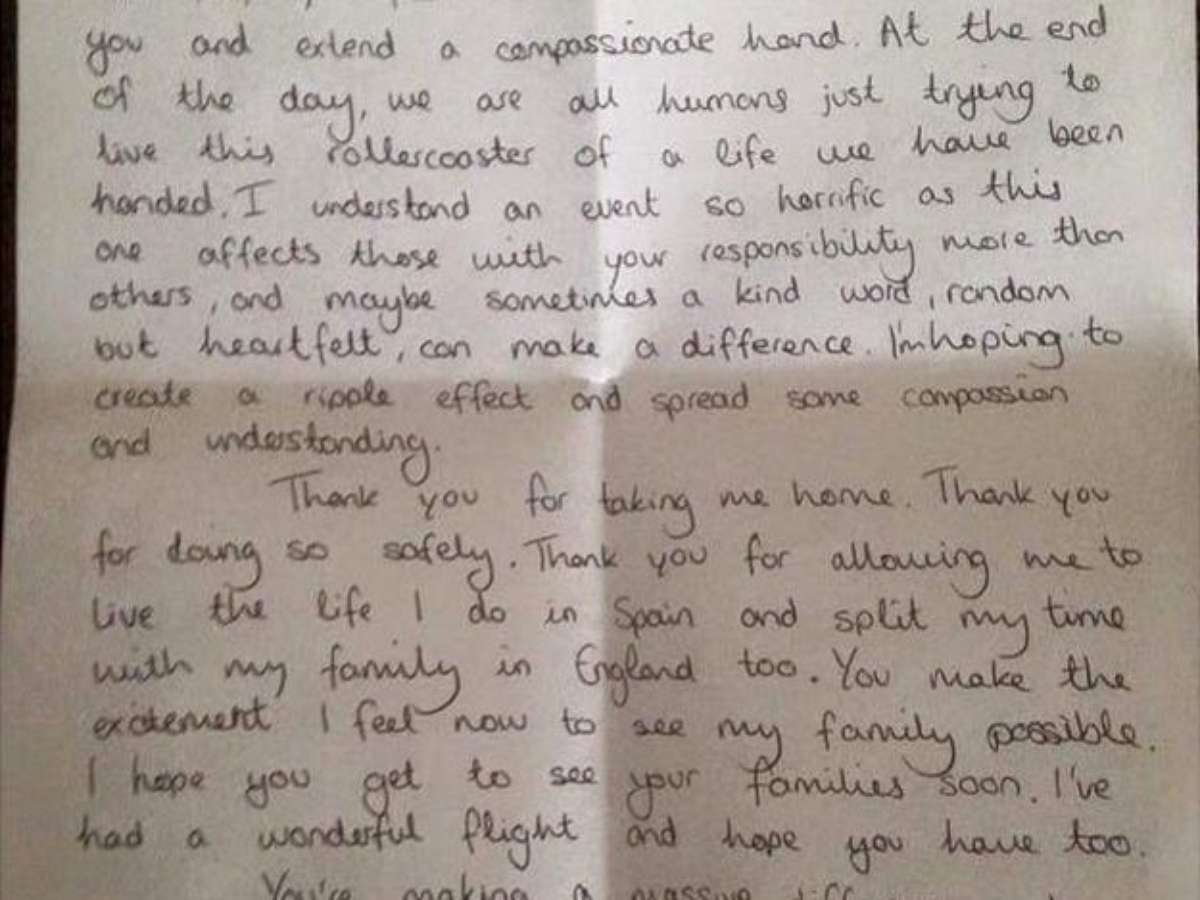 you and extend a compassionate hand. At the end
of the day, we are all humans just trying to
live this rollercoaster of a life we have been
handed. I understand an event so horrific as this
one affects those with your responsibility more than
others, and maybe sometimes a kind word, random
but heartfelt, can make a difference. I'm hoping to
create a ripple effect and spread some compassion
and understanding.
Thank you for taking me home. Thank you
for doing so safely. Thank you for allowing me to
live the life I do in Spain and split my time
with my family in England too. You make the
excitement I feel now to see my family possible.
I hope you get to see your families soon. I've
had a wonderful flight and hope you have too.
You're making a massive